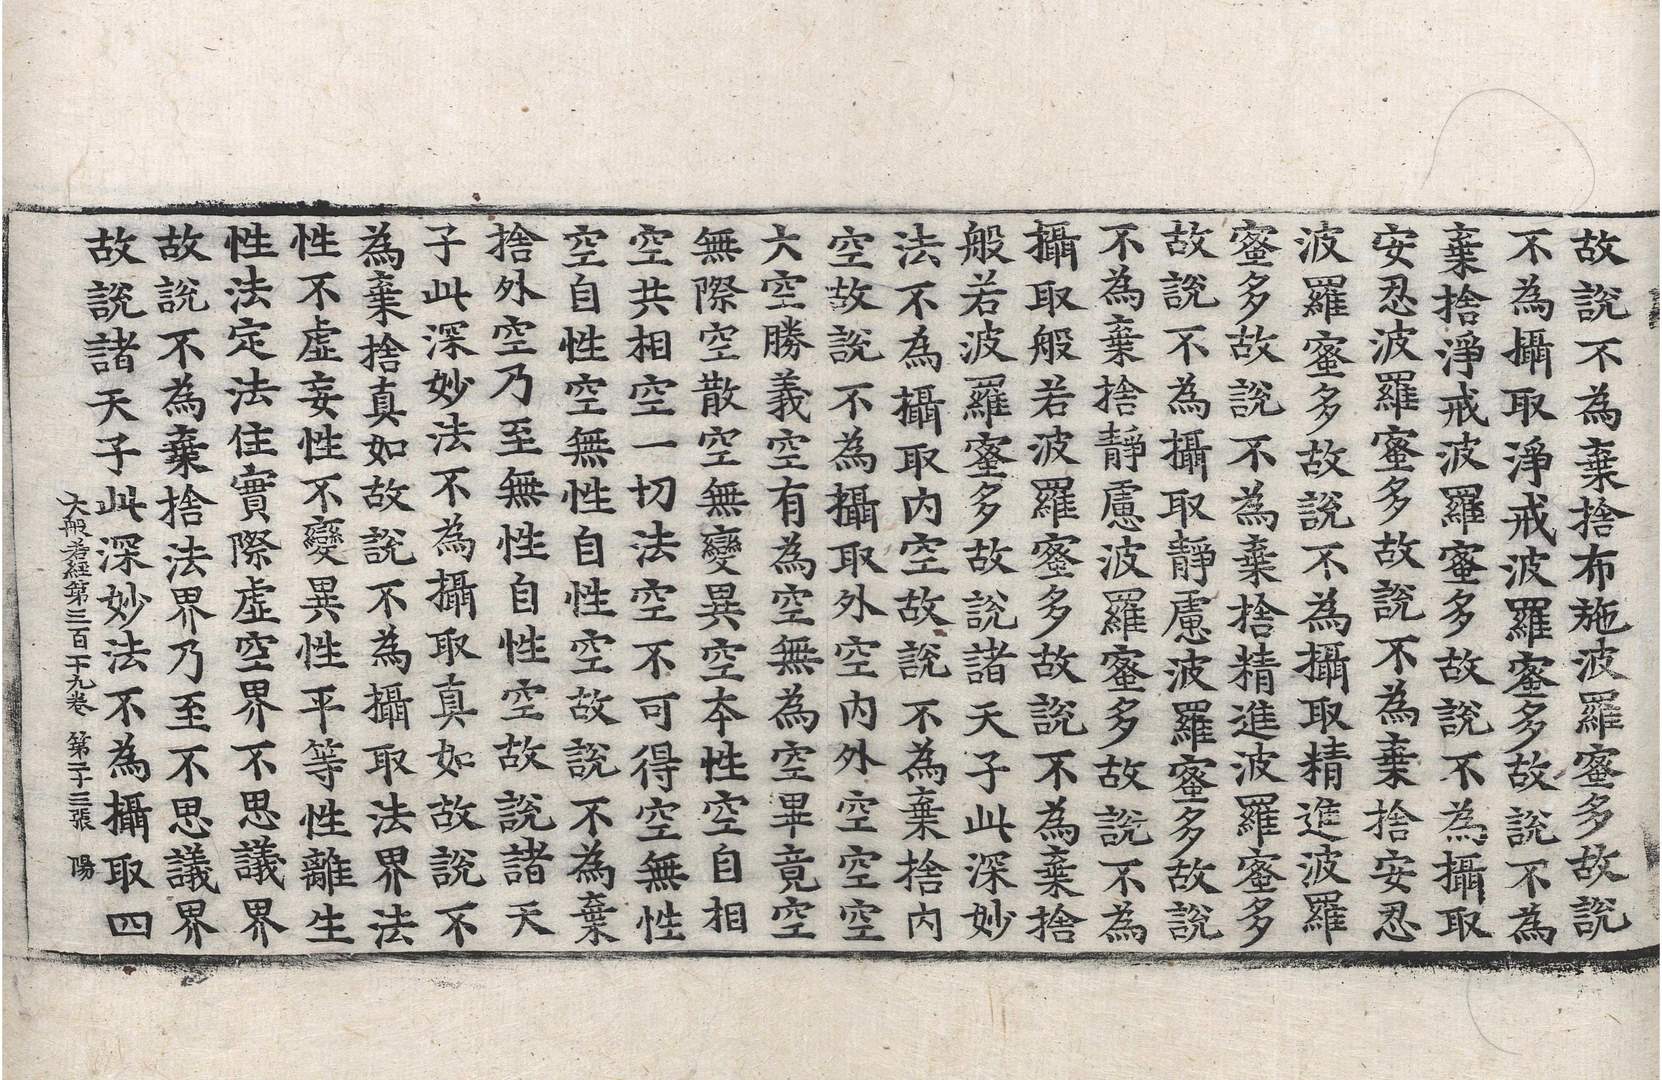 故說不為棄捨布施波羅蜜多故說
不為攝取淨戒波羅蜜多故說不為
棄捨淨戒波羅蜜多故說不為攝取
安忍波羅蜜多故說不為棄捨安忍
波羅蜜多故說不為攝取精進波羅
蜜多故說不為棄捨精進波羅蜜多
故說不為攝取靜慮波羅蜜多故說
不為棄捨靜慮波羅蜜多故說不為
攝取般若波羅蜜多故說不為棄捨
般若波羅蜜多故說諸天子此深妙
法不為攝取內空故說不為棄捨內
空故說不為攝取外空內外空空空
大空勝義空有為空無為空畢竟空
無際空散空無變異空本性空自相
空共相空一切法空不可得空無性
空自性空無性自性空故說不為棄
捨外空乃至無性自性空故說諸天
子此深妙法不為攝取真如故說不
為棄捨真如故說不為攝取法界法
性不虛妄性不變異性平等性離生
性法定法住實際虛空界不思議界
故說不為棄捨法界乃至不思議界
故說諸天子此深妙法不為攝取四
大般若經第三百十九卷 第二十三張 陽